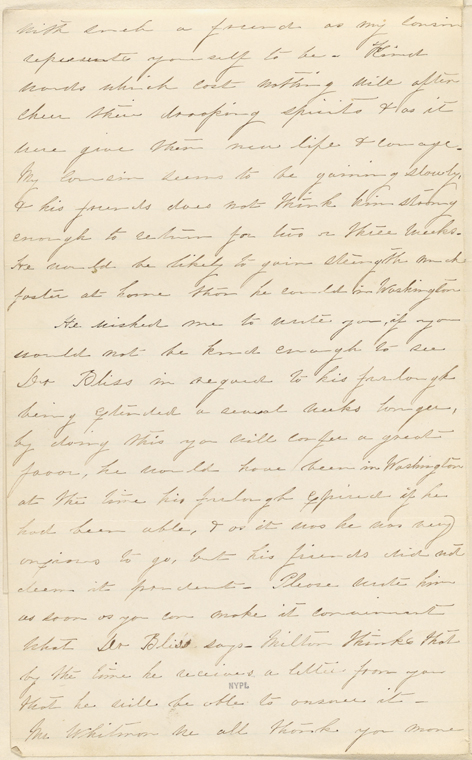 with such a friend as my cousin
represents yourself to be - Kind
words which cost nothing will often
cheer their drooping spirits & as it
were give them new life & courage -
My Cousin seems to be gaining slowly,
& his friends does not think him strong
enough to return for two or three weeks -
he would be likely to gain strength much
faster at home than he could in Washington
He wished me to write you, if you
would not be kind enough to see
Dr Bliss in regard to his furlough
being extended a several weeks longer,
by doing this you will confer a great
favor, he would have been in Washington
at the time his furlough expired if he
had been able, & as it was he was very
anxious to go, but his friends did not
deem it prudent - Please write him
as soon as you can make it convenient
what Dr Bliss says - Milton thinks that
by the time he receives a letter from you
that he will be able to answer it -
NYPL
Mr Whitman we all thank you more